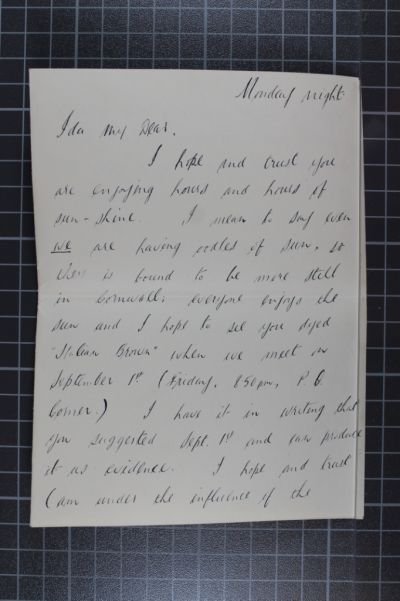 Monday night.
Ida my Dear,
I hope and trust you
are enjoying hours and hours of
sun-shine. I mean to say even
we are having oodles of sun, so
there is bound to be more still
in Cornwall; everyone enjoys the
sun and I hope to see you dyed
"Italian Brown" when we meet on
September 1st (Friday, 8 50pm, P. O.
Corner.) I have it in writing that
you suggested Sept. 1st and can produce
it as evidence. I hope and trust
(am under the influence of the